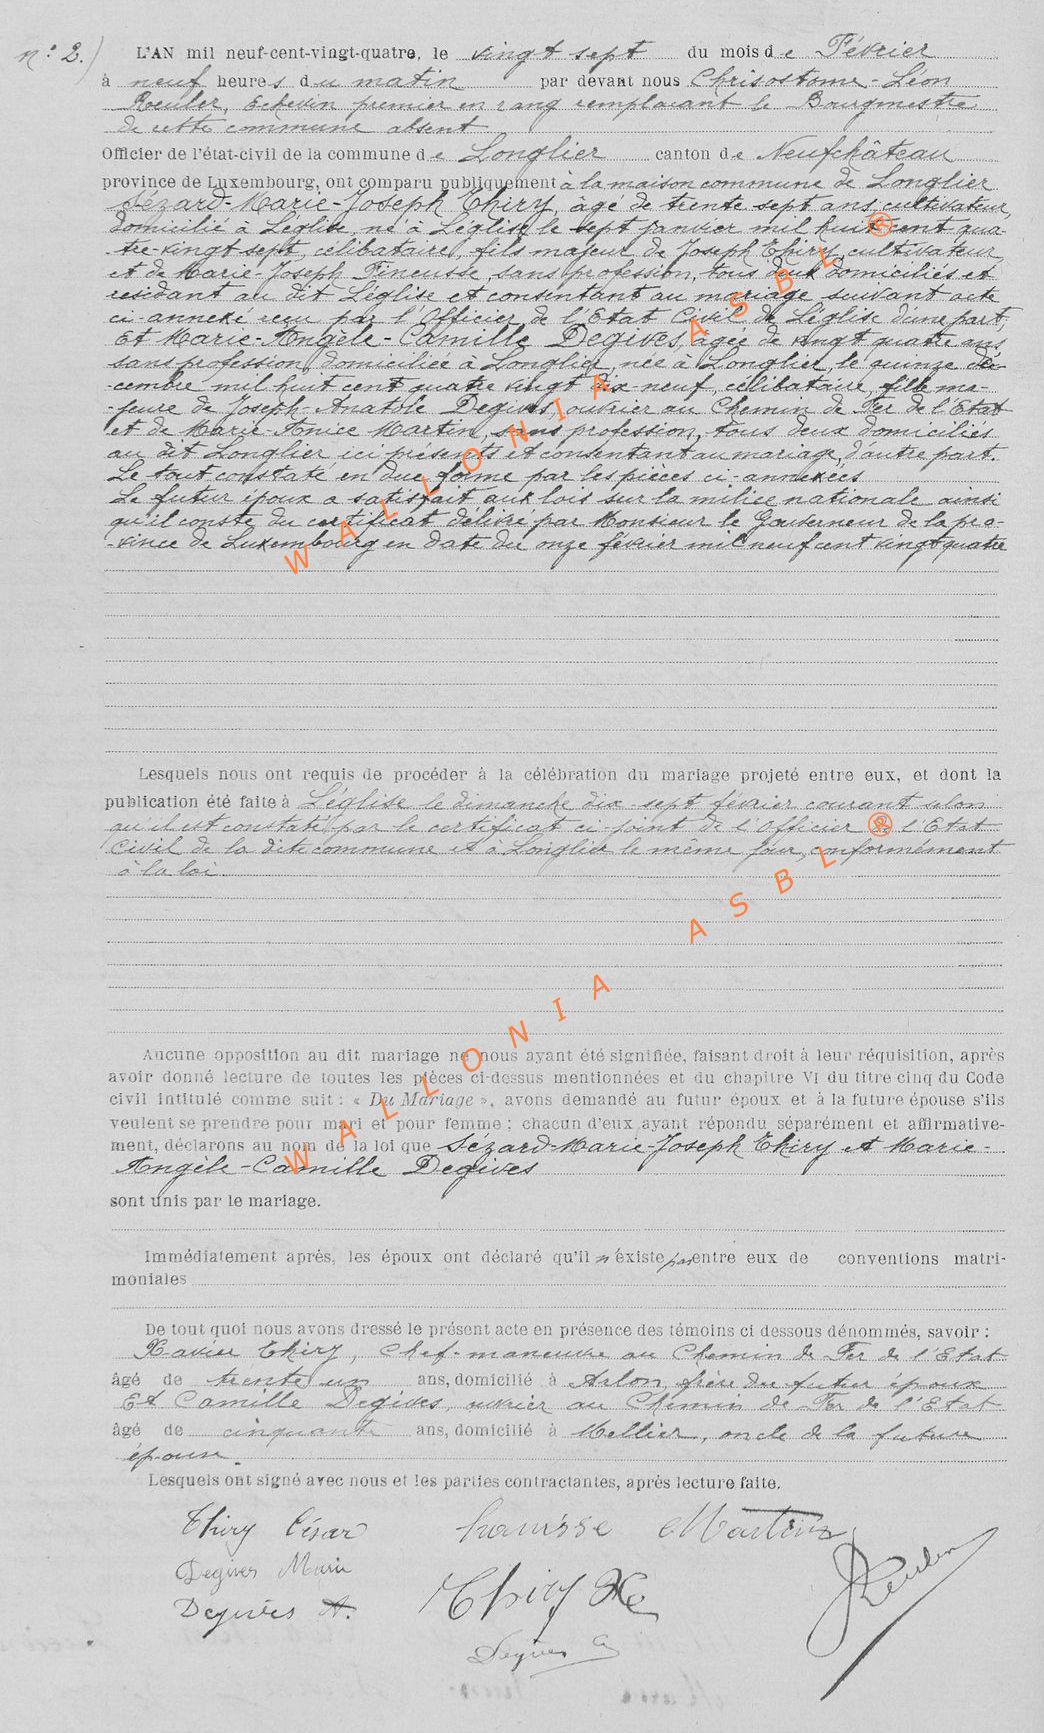 n: 2.)
L'AN mil neuf-cent-vingt-quatre, le vingt sept du mois de Février
à neuf heures du matin par devant nous Chrisostome-Léon
Reuler, Echevin premier en rang remplacant le Bourgmestre
de cette commune absent
Officier de l'état-civil de la commune de Longlier canton de Neufchâteau
province de Luxembourg, ont comparu publiquement à la maison commune de Longlier
Sézard-Marie-Joseph Thiry, âgé de trente sept ans, cultivateur,
domicilié à Léglise, né à Léglise le sept janvier mil huit cent qua-
-tre-vingt sept, célibataire, fils majeur de Joseph Thiry, cultivateur,
et de Marie-Joseph Fineusse, sans profession, tous deux domiciliés et
résidant au dit Léglise et consentant au mariage suivant acte
ci-annexé reçu par l'Officier de l'Etat Civil de Léglise d'une part,
Et Marie-Angèle-Camille Degives, âgée de vingt quatre ans
sans profession, domiciliée à Longlier, née à Longlier, le quinze dé-
-cembre mil huit cent quatre vingt dix-neuf, célibataire, fille ma-
-jeure de Joseph-Anatole Degives, ouvrier au Chemin de Fer de l'Etat
et de Marie-Anice Martin, sans profession, tous deux domiciliés
au dit Longlier ici présents et consentant au mariage, d'autre part.
Le tout constaté en due forme par les pièces ci-annexées
Le futur époux a satisfait aux lois sur la milice nationale ainsi
qu'il conste du certificat délivré par Monsieur le Gouverneur de la pro-
-vince de Luxembourg en date du onze février mil neuf cent vingt quatre
WALLONIA ASBL ®
Lesquels nous ont requis de procéder à la célébration du mariage projeté entre eux, et dont la
publication été faite à Léglise le dimanche dix-sept février courant selon
qu'il est constaté par le certificat ci-joint de l'Officier de l'Etat
Civil de la dite commune et à Longlier le même jour, conformément
à la loi.
WALLONIA ASBL ®
Aucune opposition au dit mariage ne nous ayant été signifiée, faisant droit à leur réquisition, après
avoir donné lecture de toutes les pièces ci-dessus mentionnées et du chapitre VI du titre cinq du Code
civil intitulé comme suit : « Du Mariage », avons demandé au futur époux et à la future épouse s'ils
veulent se prendre pour mari et pour femme ; chacun d'eux ayant répondu séparément et affirmative-
ment, déclarons au nom de la loi que Sézard-Marie-Joseph Thiry et Marie-
Angèle-Camille Degives
sont unis par le mariage.
Immédiatement après, les époux ont déclaré qu'il n'existe pas entre eux de conventions matri-
moniales
De tout quoi nous avons dressé le présent acte en présence des témoins ci dessous dénommés, savoir :
Xavier Thiry, Chef-manœuvre au Chemin de Fer de l'Etat
âgé de trente un ans, domicilié à Arlon, frère du futur époux
Et Camille Degives, ouvrier au Chemin de Fer de l'Etat
âgé de cinquante ans, domicilié à Mellier, oncle de la future
épouse.
Lesquels ont signé avec nous et les parties contractantes, après lecture faite.
Thiry César Martin
Degives Marie
Degives A. Thiry X Reuler
Degives C